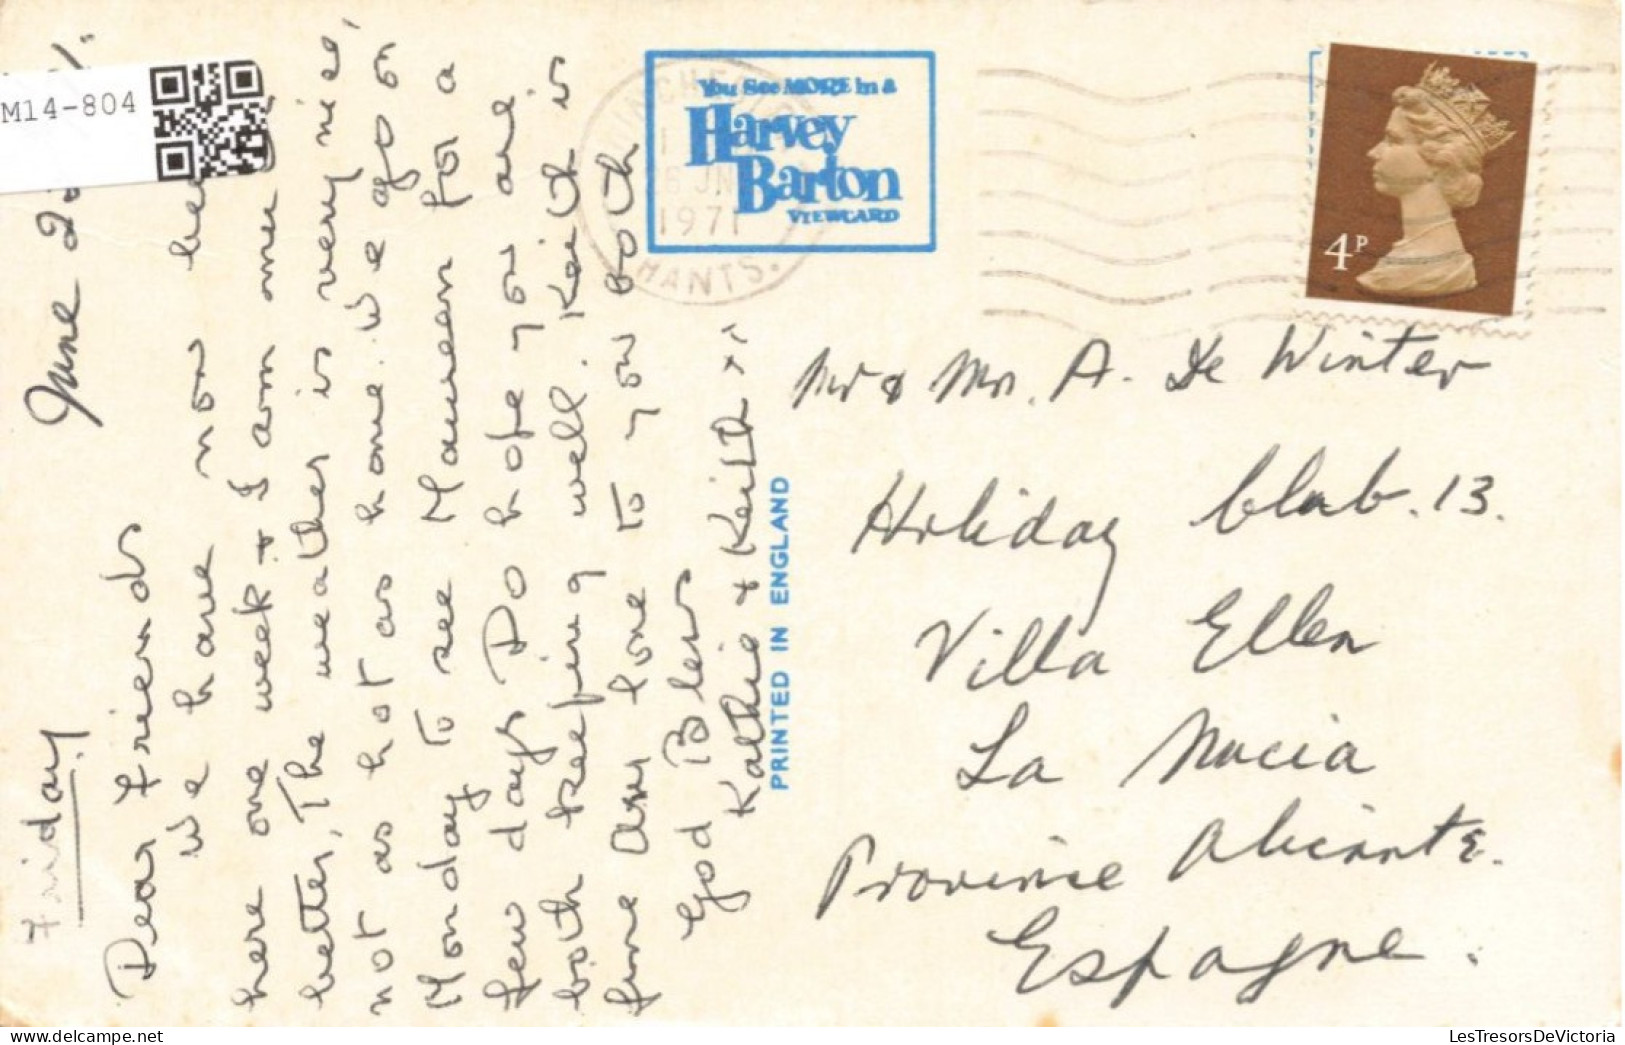 M14-804
Friday
June
Dear Friends
We have now
here one week & I am
better, The weather is very nice,
not as hot as home. We go on
Monday to see Maureen for a
few days Do hope you are
both keeping well. Keith is
fine Our love to you both
God Bless
Kathie & Keith xx
PRINTED IN ENGLAND
You See MORE in a
Harvey
Barton
VIEWCARD
1971
HANTS.
4P
Mr & Mrs. A. De Winter
Holiday Club. 13.
Villa Ellen
La Nucia
Province Alicante.
Espagne.
LesTresorsDeVictoria